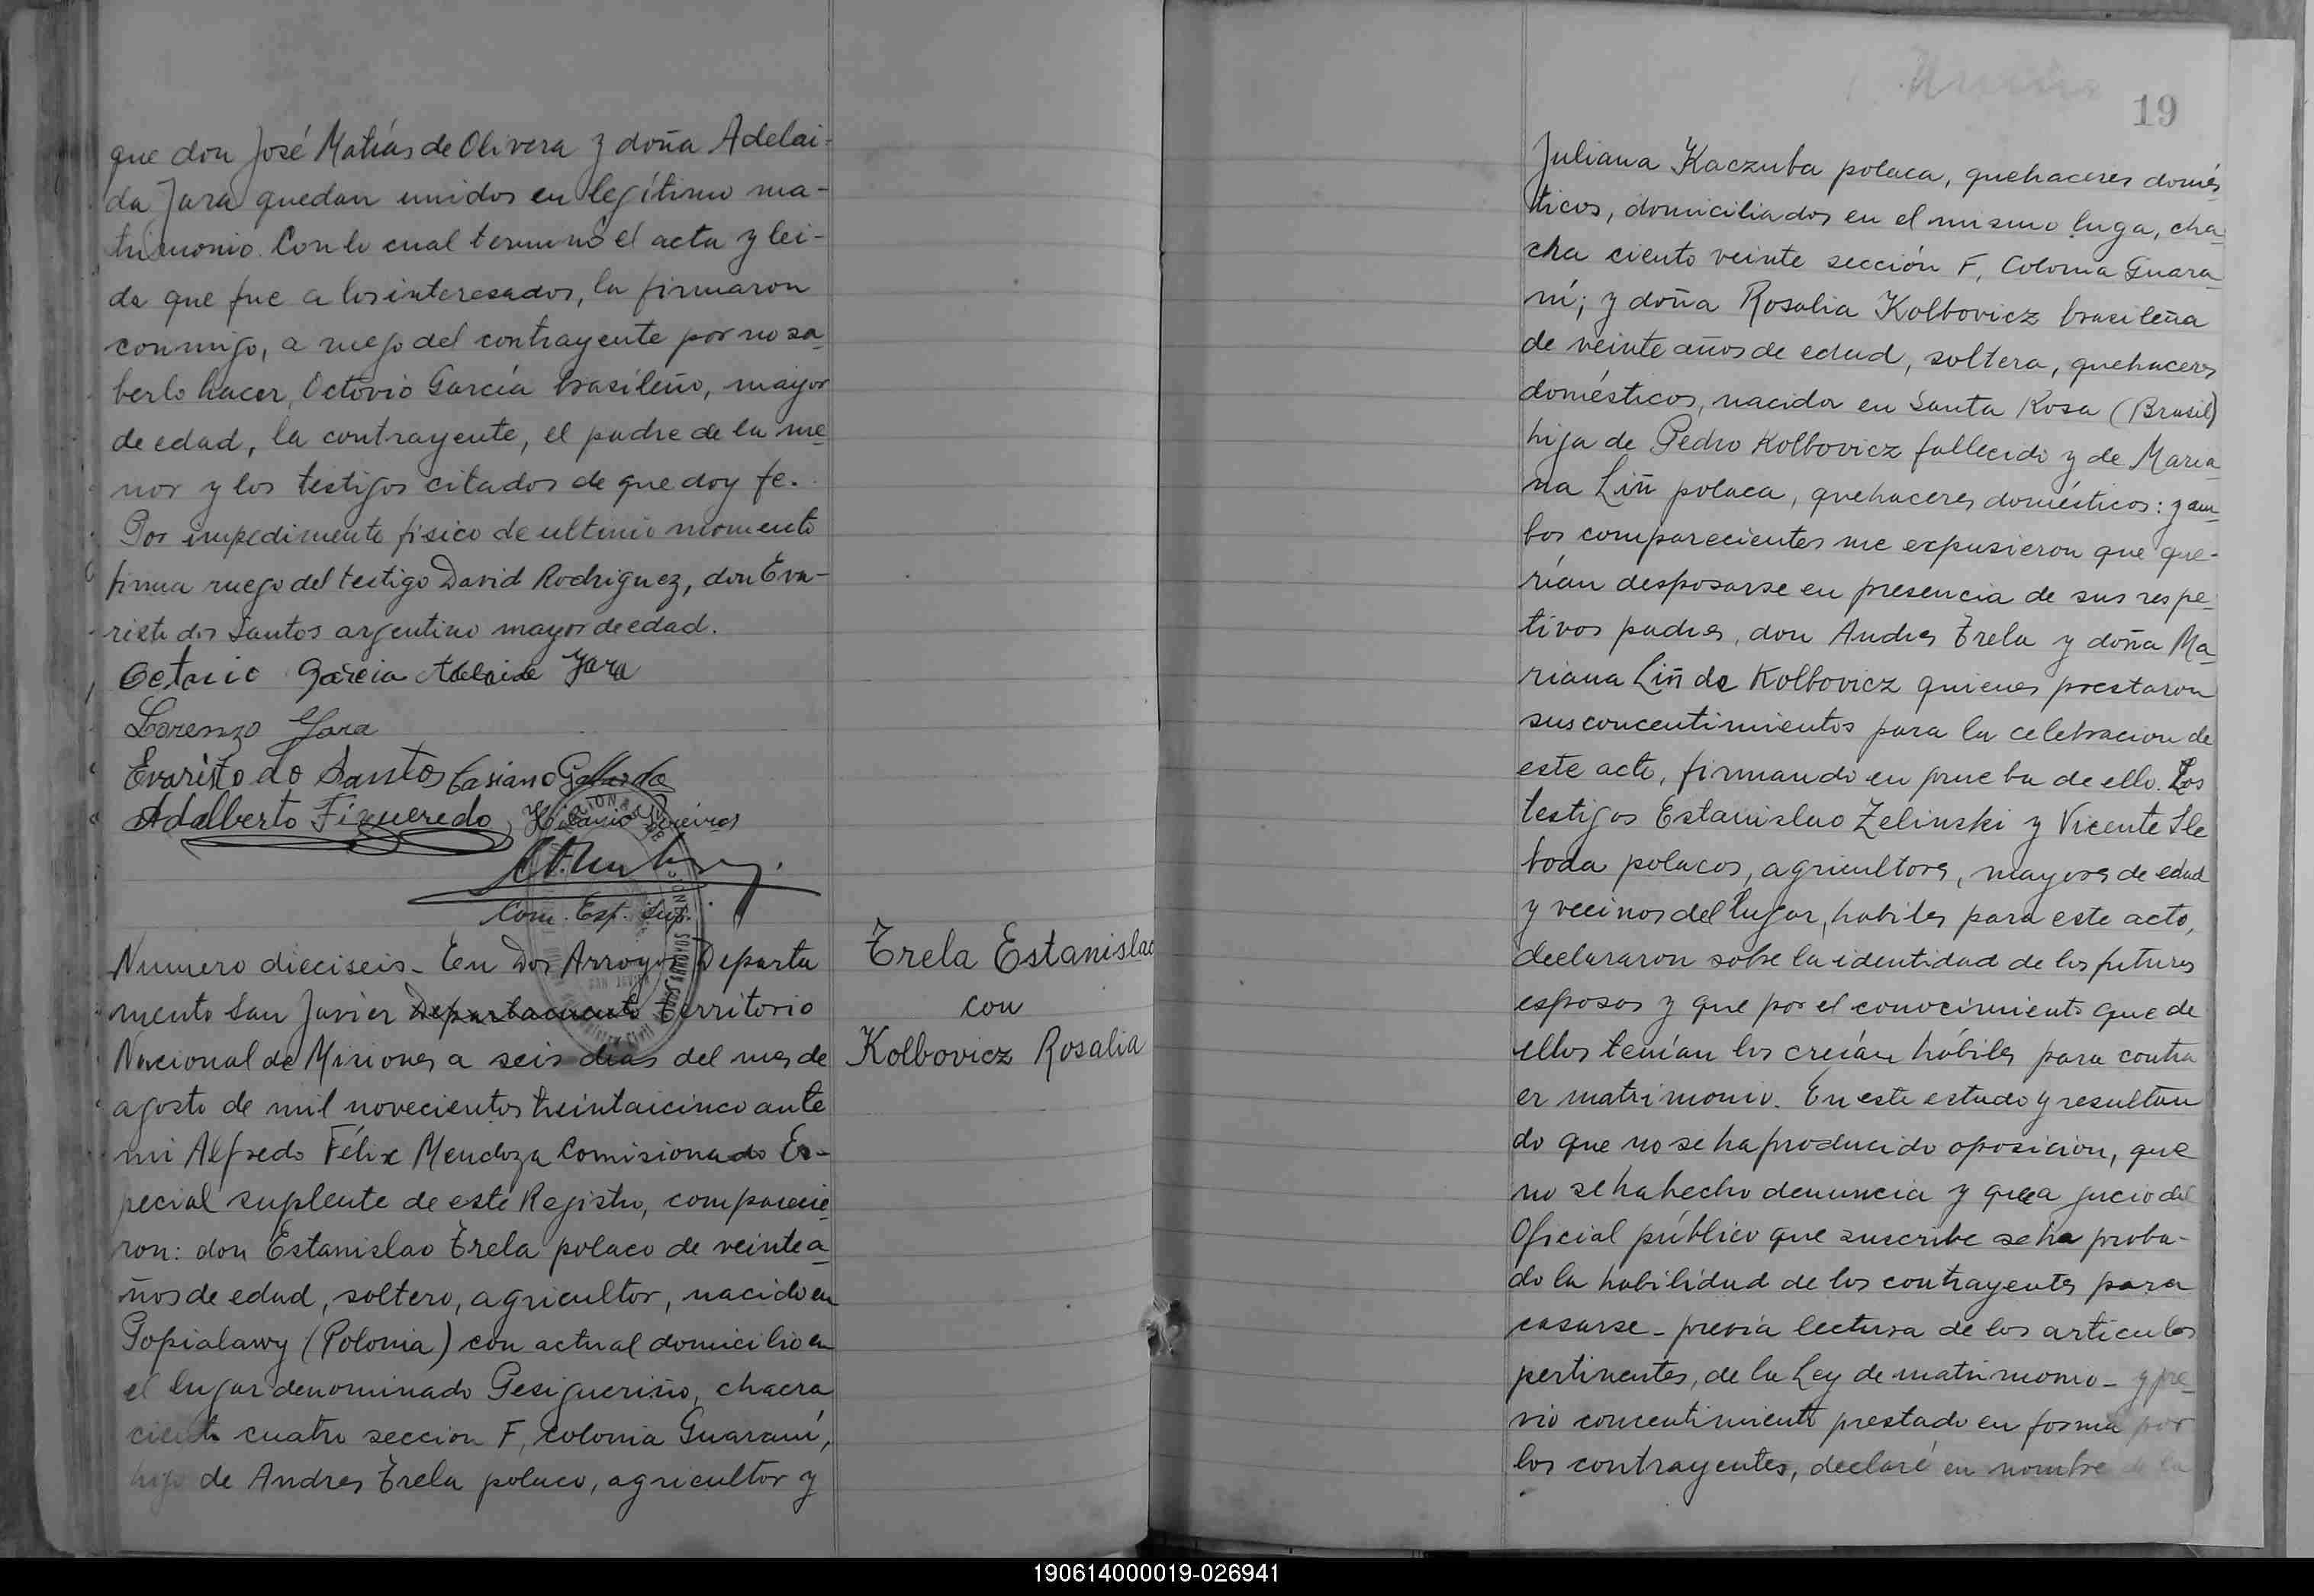 que don José Matías de Olivera y doña Adelai-
da Jara quedan unidos en legítimo ma-
trimonio. Con lo cual terminó el acta y lei-
da que fue a los interesados, la firmaron
conmigo, a ruego del contrayente por no sa-
berlo hacer, Octovio García brasileño, mayor
de edad, la contrayente, el padre de la me-
nor y los testigos citados de que doy fe.
Por impedimento físico de ultimo momento
firma ruego del testigo David Rodriguez, don Eva-
risto dos Santos argentino mayor de edad.
Octavio Garcia Adelaida Jara
Lorenzo Jara
Evaristo do Santos Casiano
Adalberto Figueredo
Com. Esp. Sup.
Numero dieciseis_ En Dos Arroyos Departa
mento San Javier Departamento territorio
Nacional de Misiones a seis dias del mes de
agosto de mil novecientos treintaicinco ante
mi Alfredo Félix Mendoza Comisionado Es-
pecial suplente de este Registro, comparecie-
ron: don Estanislao Trela polaco de veinte a-
ños de edad, soltero, agricultor, nacido en
Popialawy (Polonia) con actual domicilio en
el lugar denominado Pesigueriño, chacra
ciento cuatro seccion F, colonia Guaraní,
hijo de Andres Trela polaco, agricultor y
Trela Estanislao
con
Kolbovicz Rosalia
19
Juliana Kaczuba polaca, quehaceres domés
ticos, domiciliados en el mismo luga, cha-
cra ciento veinte sección F, Colonia Guara-
ní; y doña Rosalia Kolbovicz brasileña
de veinte años de edad, soltera, quehaceres
domésticos, nacida en Santa Rosa (Brasil)
hija de Pedro Kolbovicz fallecido y de Maria-
na Liñ polaca, quehaceres domésticos: y am-
bos comparecientes me expusieron que que-
rían desposarse en presencia de sus respe-
tivos padres, don Andres Trela y doña Ma-
riana Liñ de Kolbovicz quienes prestaron
sus concentimientos para la celebracion de
este acto, firmando en prueba de ello. Los
testigos Estanislao Zelinski y Vicente Sle
boda polacos, agricultores, mayores de edad
y vecinos del lugar, habiles para este acto,
declararon sobre la identidad de los futuros
esposos y que por el conocimiento que de
ellos tenían los creían hábiles para contra
er matrimonio. En este estado y resultan
do que no se ha producido oposicion, que
no se ha hecho denuncia y que a jucio del
Oficial público que suscribe se ha proba-
do la habilidad de los contrayentes para
casarse_ previa lectura de los articulos
pertinentes, de la Ley de matrimonio_ y pre-
vio concentimiento prestado en forma por
los contrayentes, declaré en nombre de la
190614000019-026941